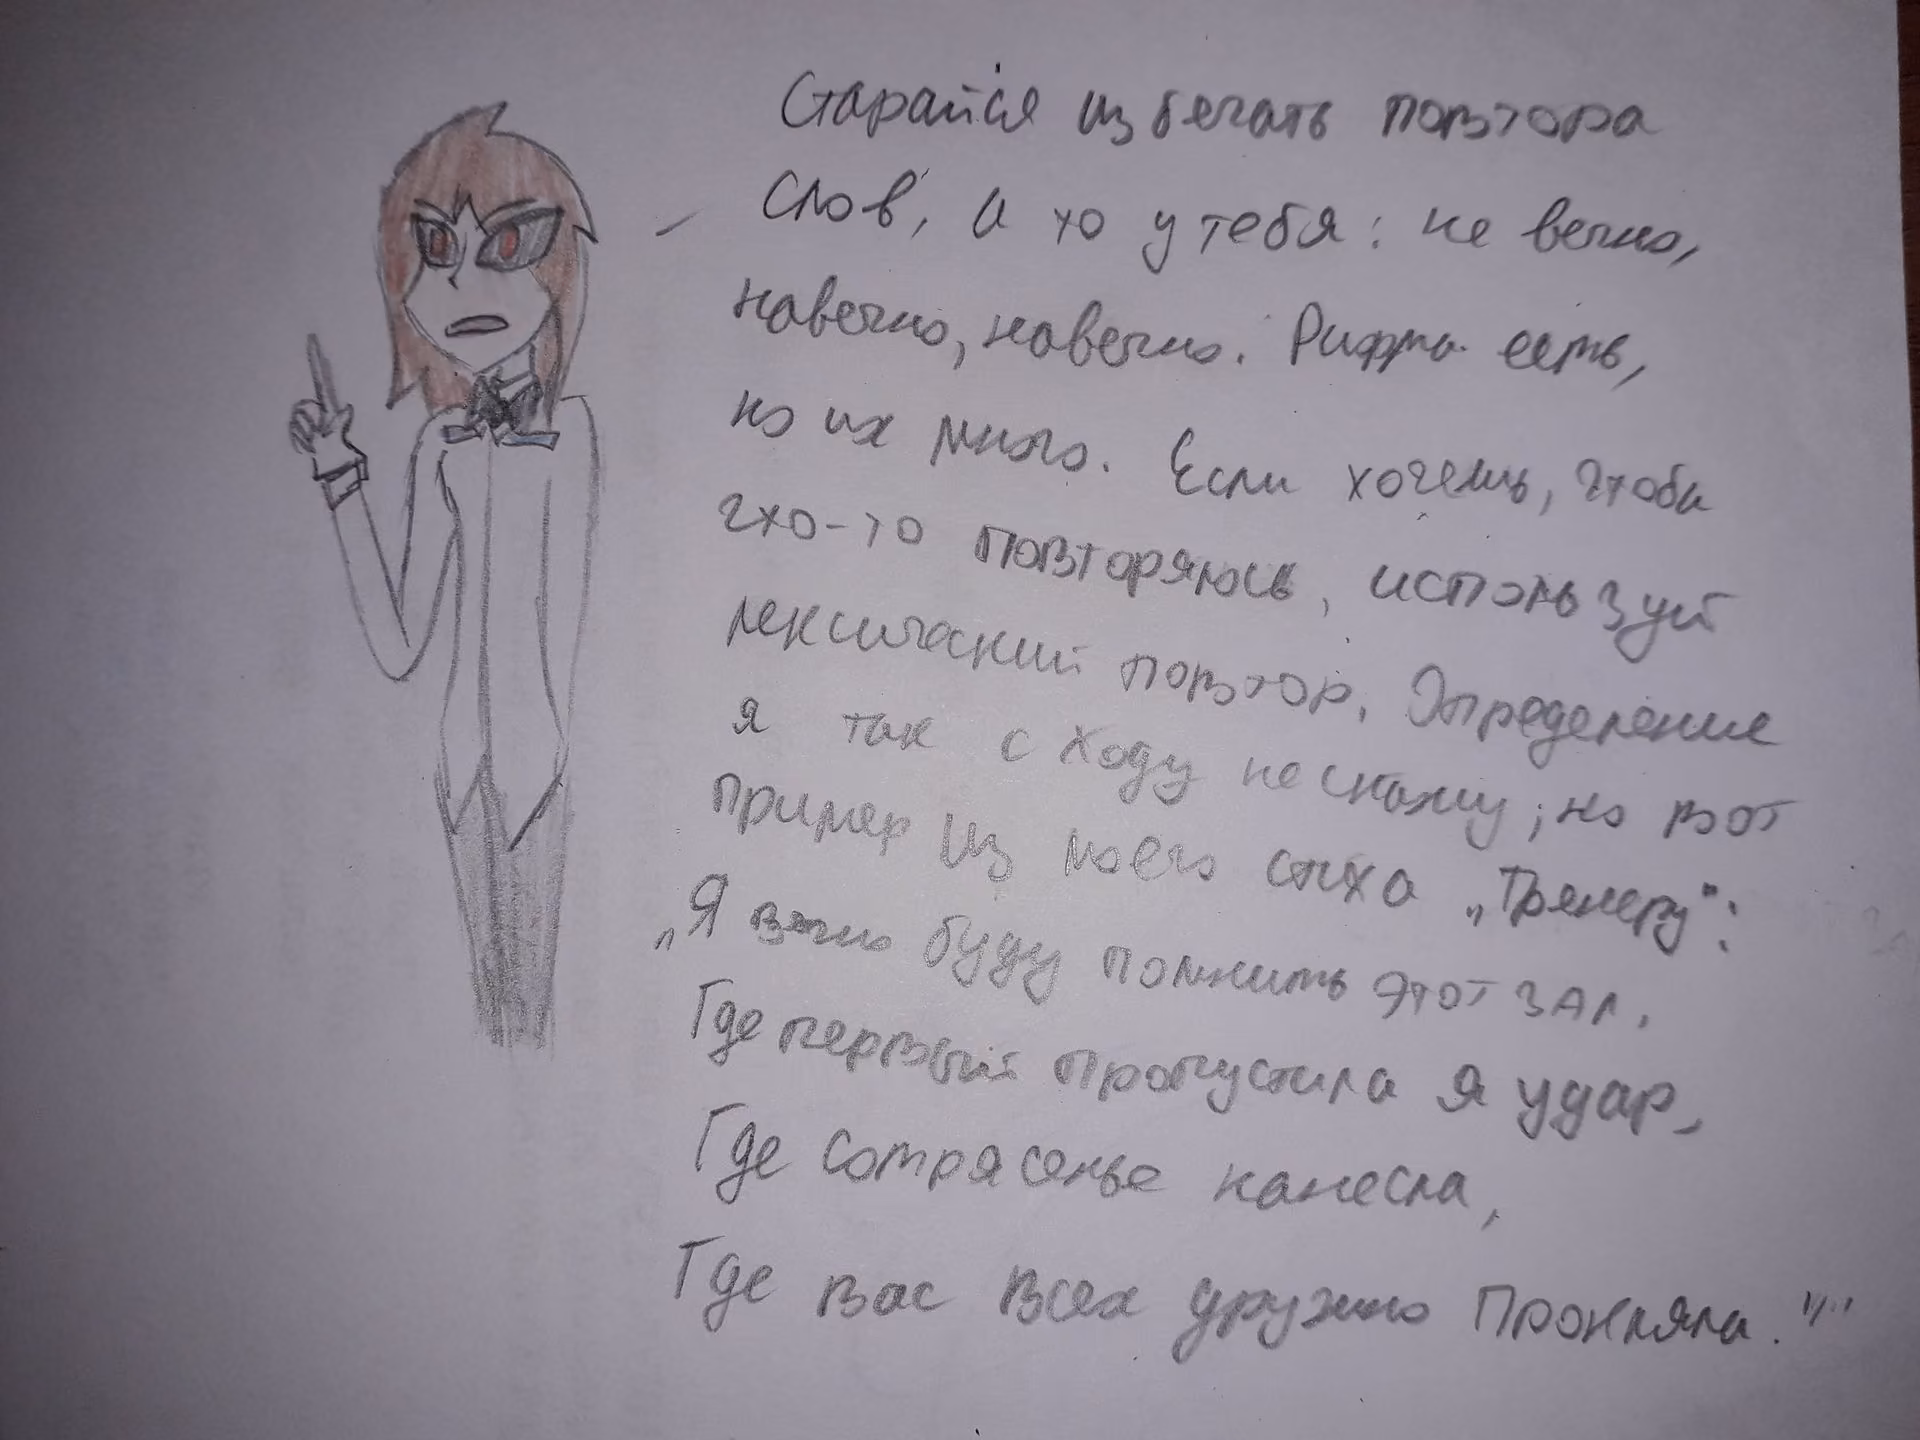 Старайся избегать повтора
слов, а то у тебя: не вечно,
навечно, навечно. Рифма есть,
но их много. Если хочешь, чтобы
что-то повторялось, используй
лексический повтор. Определение
я так с ходу не скажу, но вот
пример из моего стиха „Тренеру":
„Я вечно буду помнить этот зал,
Где первый пропустила я удар,
Где сотрясенье нанесла,
Где вас всех дружно прокляла."